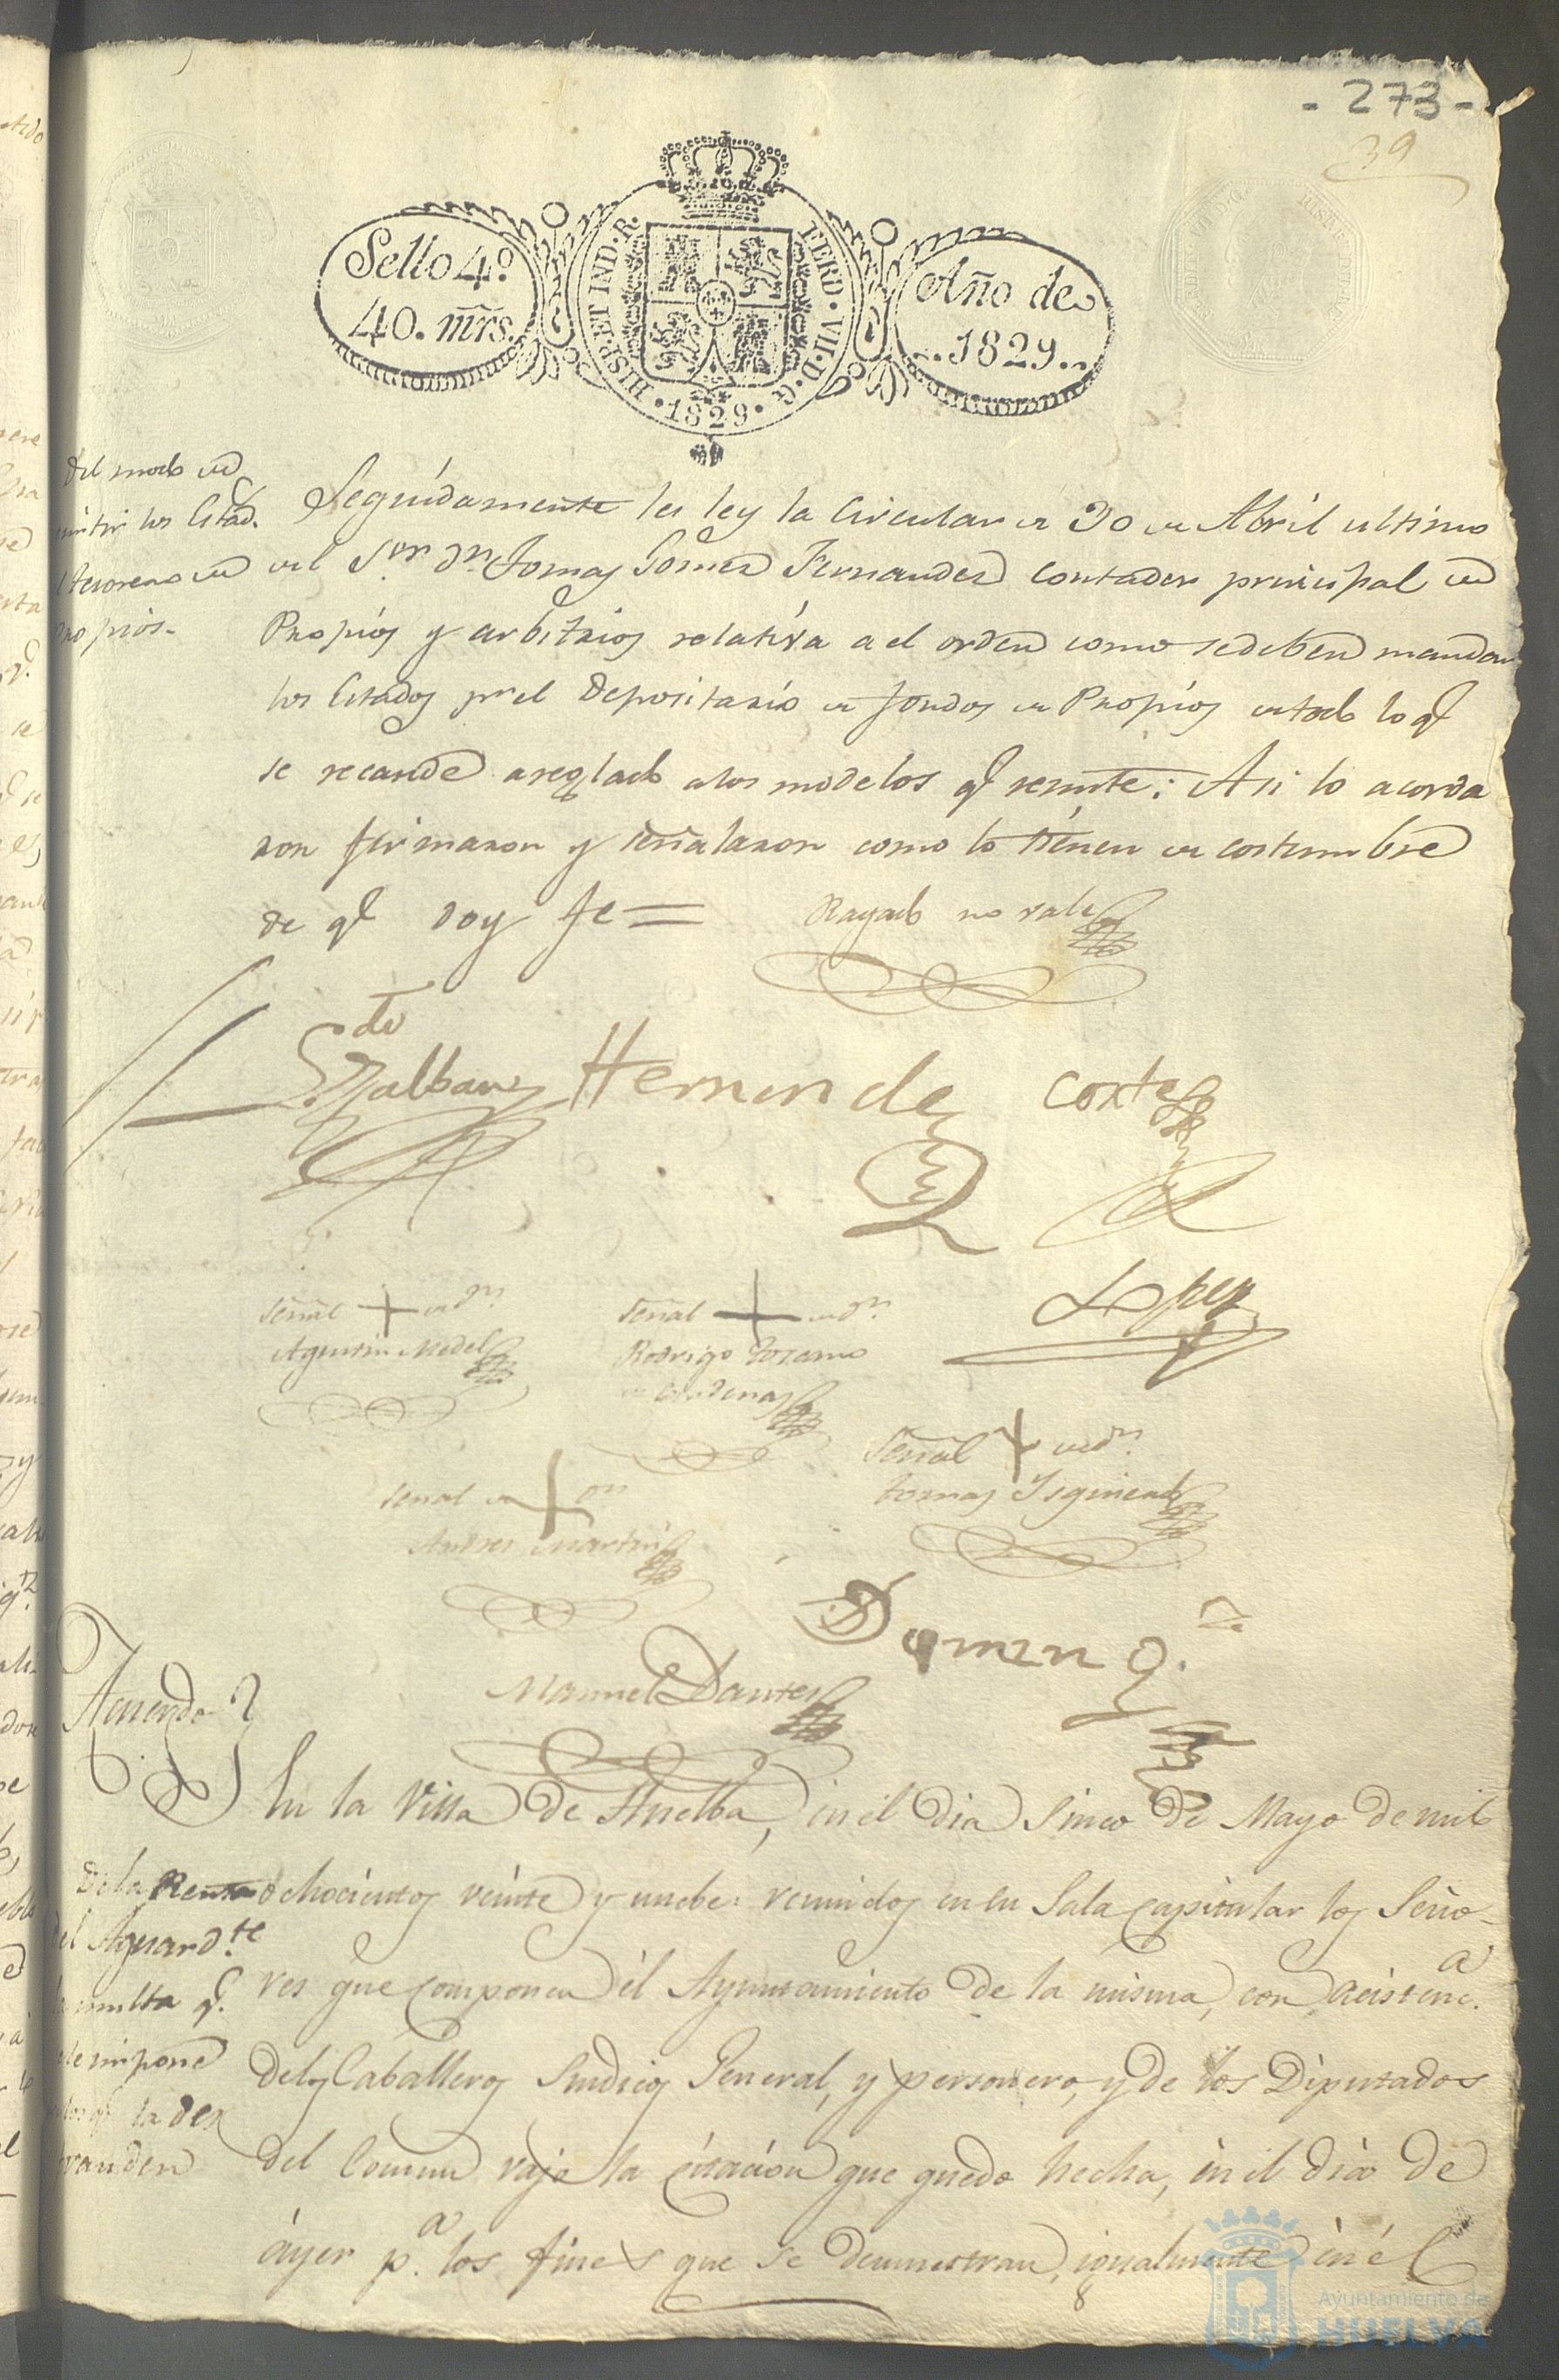 - 273 -
39
Sello 4º
40. mrs.
HISP. ET IND. R.
FERD. VII. D. G.
1829
Año de
1829
del modo de
los Estad.
tesorero de
Propios.
Seguidamente les ley la Circular de 30 de Abril ultimo
del Sor. dn. Tomas Gomez Fernandez contador principal de
Propios y arbitrios relativa a el orden como se deben mandar
los Estados pr el Depositario de fondos de Propios de todo lo q.
se recaude areglado a los modelos q. remite: Asi lo acorda
ron firmaron y señalaron como lo tienen de costumbre
de q. doy fe =
Rayado no vale
Galban
Hernande
Cortes
Lopez
Señal + de dn.
Agustin Medel
Señal + de dn.
Rodrigo Lozano
de Cardenas
Señal + de dn.
Tomas Ysquierdo
Señal de + dn
Andres Martin
Doming.z
Manuel Dantes
Acuerdo
En la Villa de Huelba, en él dia Sinco de Mayo de mil
De la Renta
ochocientos veinte y nuebe: reunidos en su Sala Capitular los Seño-
del Aguardte
res que componen él Ayuntamiento de la misma, con acistenc.a
multa q.
se impone
de los Caballeros Sindicos General, y personero, y de los Diputados
los q. la des
del Comun vajo la citacion que quedo hecha, en el dia de
rauden
áyer p.a los fines que se demuestran, igualmente en él
Ayuntamiento de
HUELVA